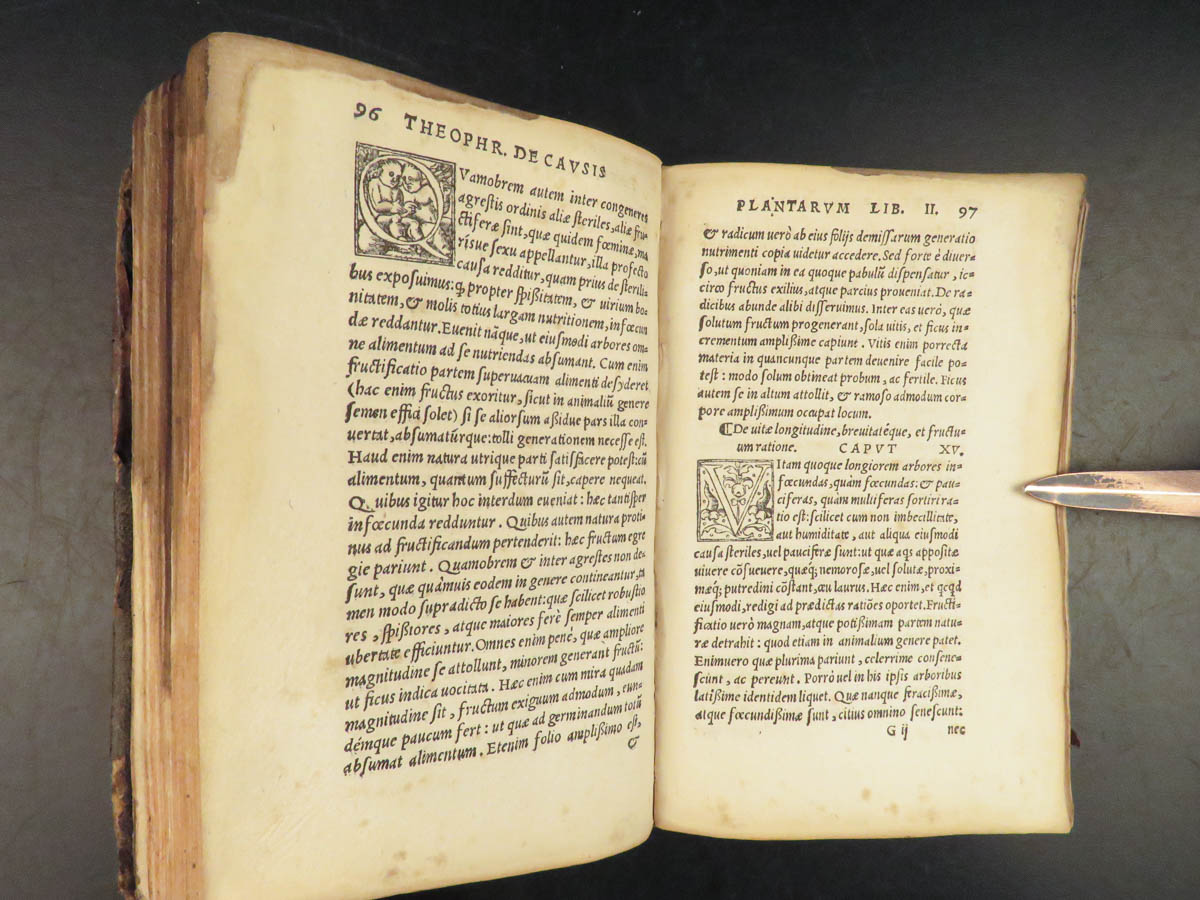 96 THEOPHR. DE CAVSIS
QVamobrem autem inter congeneres
agrestis ordinis aliæ steriles, aliæ fru-
ctiferæ sint, quæ quidem fœminæ, ma
risue sexu appellantur, illa profecto
causa redditur, quam prius de sterili-
bus exposuimus: ꝙ propter spißitatem, & uirium bo-
nitatem, & molis totius largam nutritionem, infœcun
dæ reddantur. Euenit nãque, ut eiusmodi arbores om-
ne alimentum ad se nutriendas absumant. Cum enim
fructificatio partem superuacuam alimenti desyderet
(hac enim fructus exoritur, sicut in animaliũ genere
semen effici solet) si se aliorsum aßidue pars illa con-
uertat, absumatúrque: tolli generationem necesse est.
Haud enim natura utrique parti satisfacere potest: cũ
alimentum, quantum suffecturũ sit, capere nequeat.
Quibus igitur hoc interdum eueniat: hæc tantisper
infœcunda redduntur. Quibus autem natura proti-
nus ad fructificandum pertenderit: hæc fructum egre
gie pariunt. Quamobrem & inter agrestes non de-
sunt, quæ quãmuis eodem in genere contineantur, ta
men modo supradicto se habent: quæ scilicet robustio
res, spißiores, atque maiores ferè semper alimenti
ubertate efficiuntur. Omnes enim penè, quæ ampliore
magnitudine se attollunt, minorem generant fructũ:
ut ficus indica uocitata. Hæc enim cum mira quadam
magnitudine sit, fructum exiguum admodum, eun-
démque paucum fert: ut quæ ad germinandum totũ
absumat alimentum. Etenim folio amplißimo est,
&
PLANTARVM LIB. II. 97
& radicum uerò ab eius folijs demissarum generatio
nutrimenti copia uidetur accedere. Sed forte è diuer-
so, ut quoniam in ea quoque pabulũ dispensatur, ic-
circo fructus exilius, atque parcius proueniat. De ra-
dicibus abunde alibi disseruimus. Inter eas uerò, quæ
solutum fructum progenerant, sola uitis, et ficus in-
crementum amplißime capiunt. Vitis enim porrecta
materia in quancunque partem deuenire facile po-
test: modo solum obtineat probum, ac fertile. Ficus
autem se in altum attollit, & ramoso admodum cor-
pore amplißimum occupat locum.
⸿De uitæ longitudine, breuitatéque, et fructu-
um ratione. CAPVT XV.
VItam quoque longiorem arbores in-
fœcundas, quàm fœcundas: & pau-
ciferas, quàm multiferas sortiri ra-
tio est: scilicet cum non imbecillitate,
aut humiditate, aut aliqua eiusmodi
causa steriles, uel pauciferæ sunt: ut quæ aqs appositæ
uiuere cõsueuere, quæq; nemorosæ, uel solutæ, proxi-
mæq; putredini cõstant, ceu laurus. Hæc enim, et qcqd
eiusmodi, redigi ad prædictas ratiões oportet. Fructi-
ficatio uerò magnam, atque potißimam partem natu-
ræ detrahit: quod etiam in animalium genere patet.
Enimuero quæ plurima pariunt, celerrime consene-
scunt, ac pereunt. Porrò uel in his ipsis arboribus
latißime identidem liquet. Quæ nanque feracißimæ,
atque fœcundißimæ sunt, citius omnino senescunt:
G ij nec